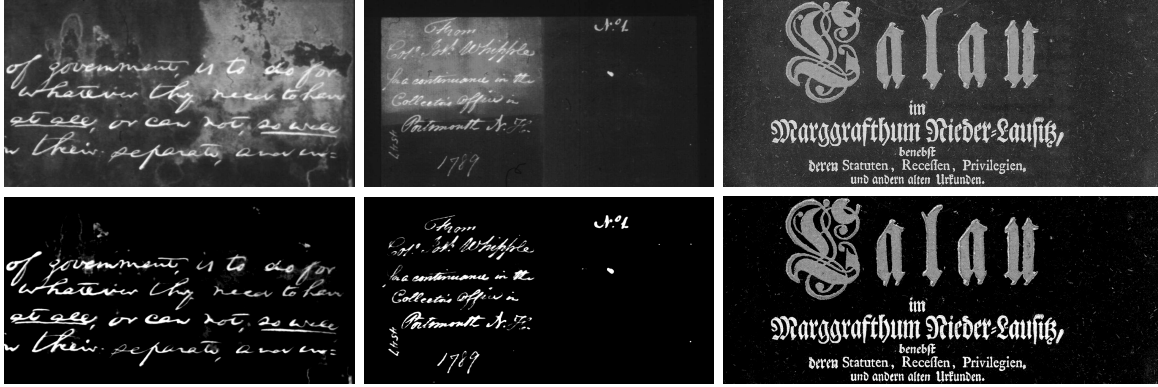 of government, is to do for
whatever they need to have
at all, or can not, so well
their separate, and in=
From
Col. Jos. Whipple
for a continuance in the
Collectors Office in
Portsmouth N. H.
1789
No. 1
Calau
im
Marggrafthum Nieder=Lausitz,
benebst
deren Statuten, Recessen, Privilegien,
und andern alten Urkunden.
of government, is to do for
whatever they need to have
at all, or can not, so well
their separate, and in=
From
Col. Jos. Whipple
for a continuance in the
Collectors Office in
Portsmouth N. H.
1789
No. 1
Calau
im
Marggrafthum Nieder=Lausitz,
benebst
deren Statuten, Recessen, Privilegien,
und andern alten Urkunden.